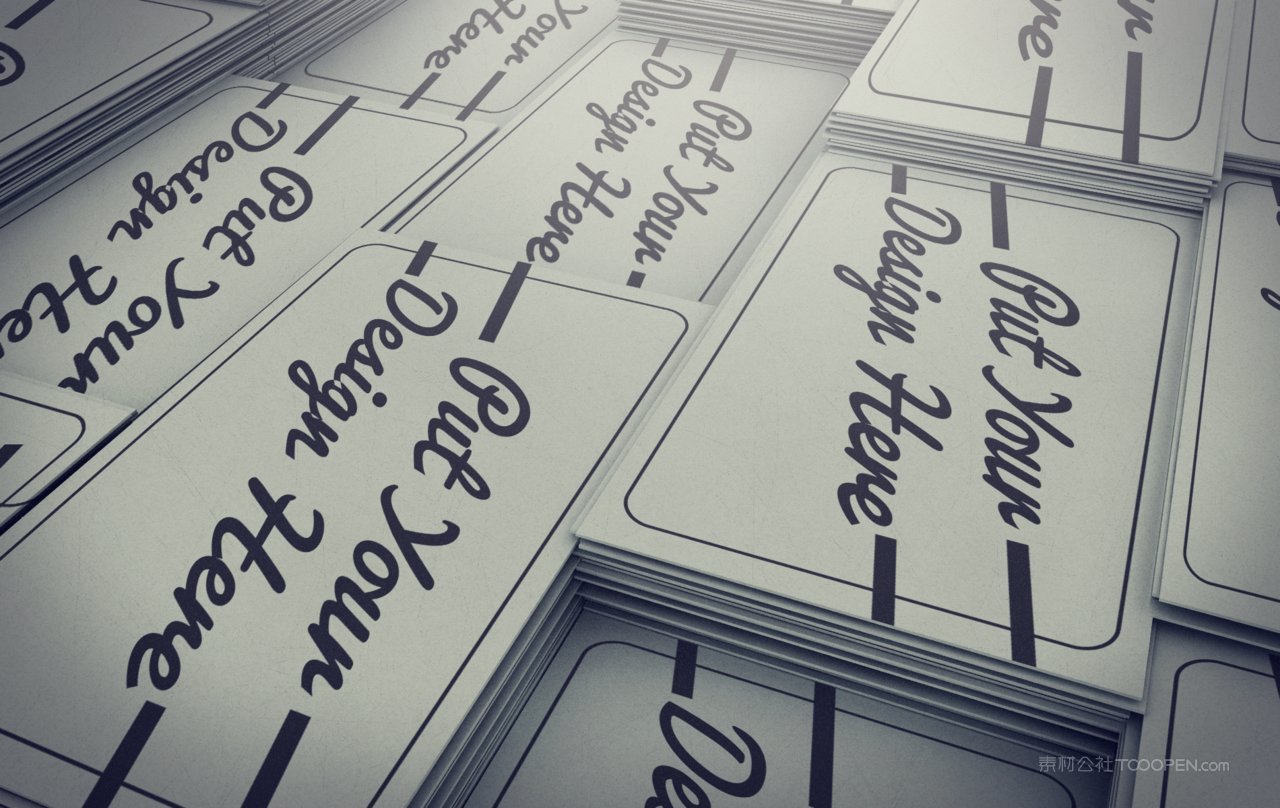 Your
Here
Put Your
Design Here
Put Your
Design Here
Put Your
Design Here
Put Your
Design Here
De
素材公社TOOOPEN.com